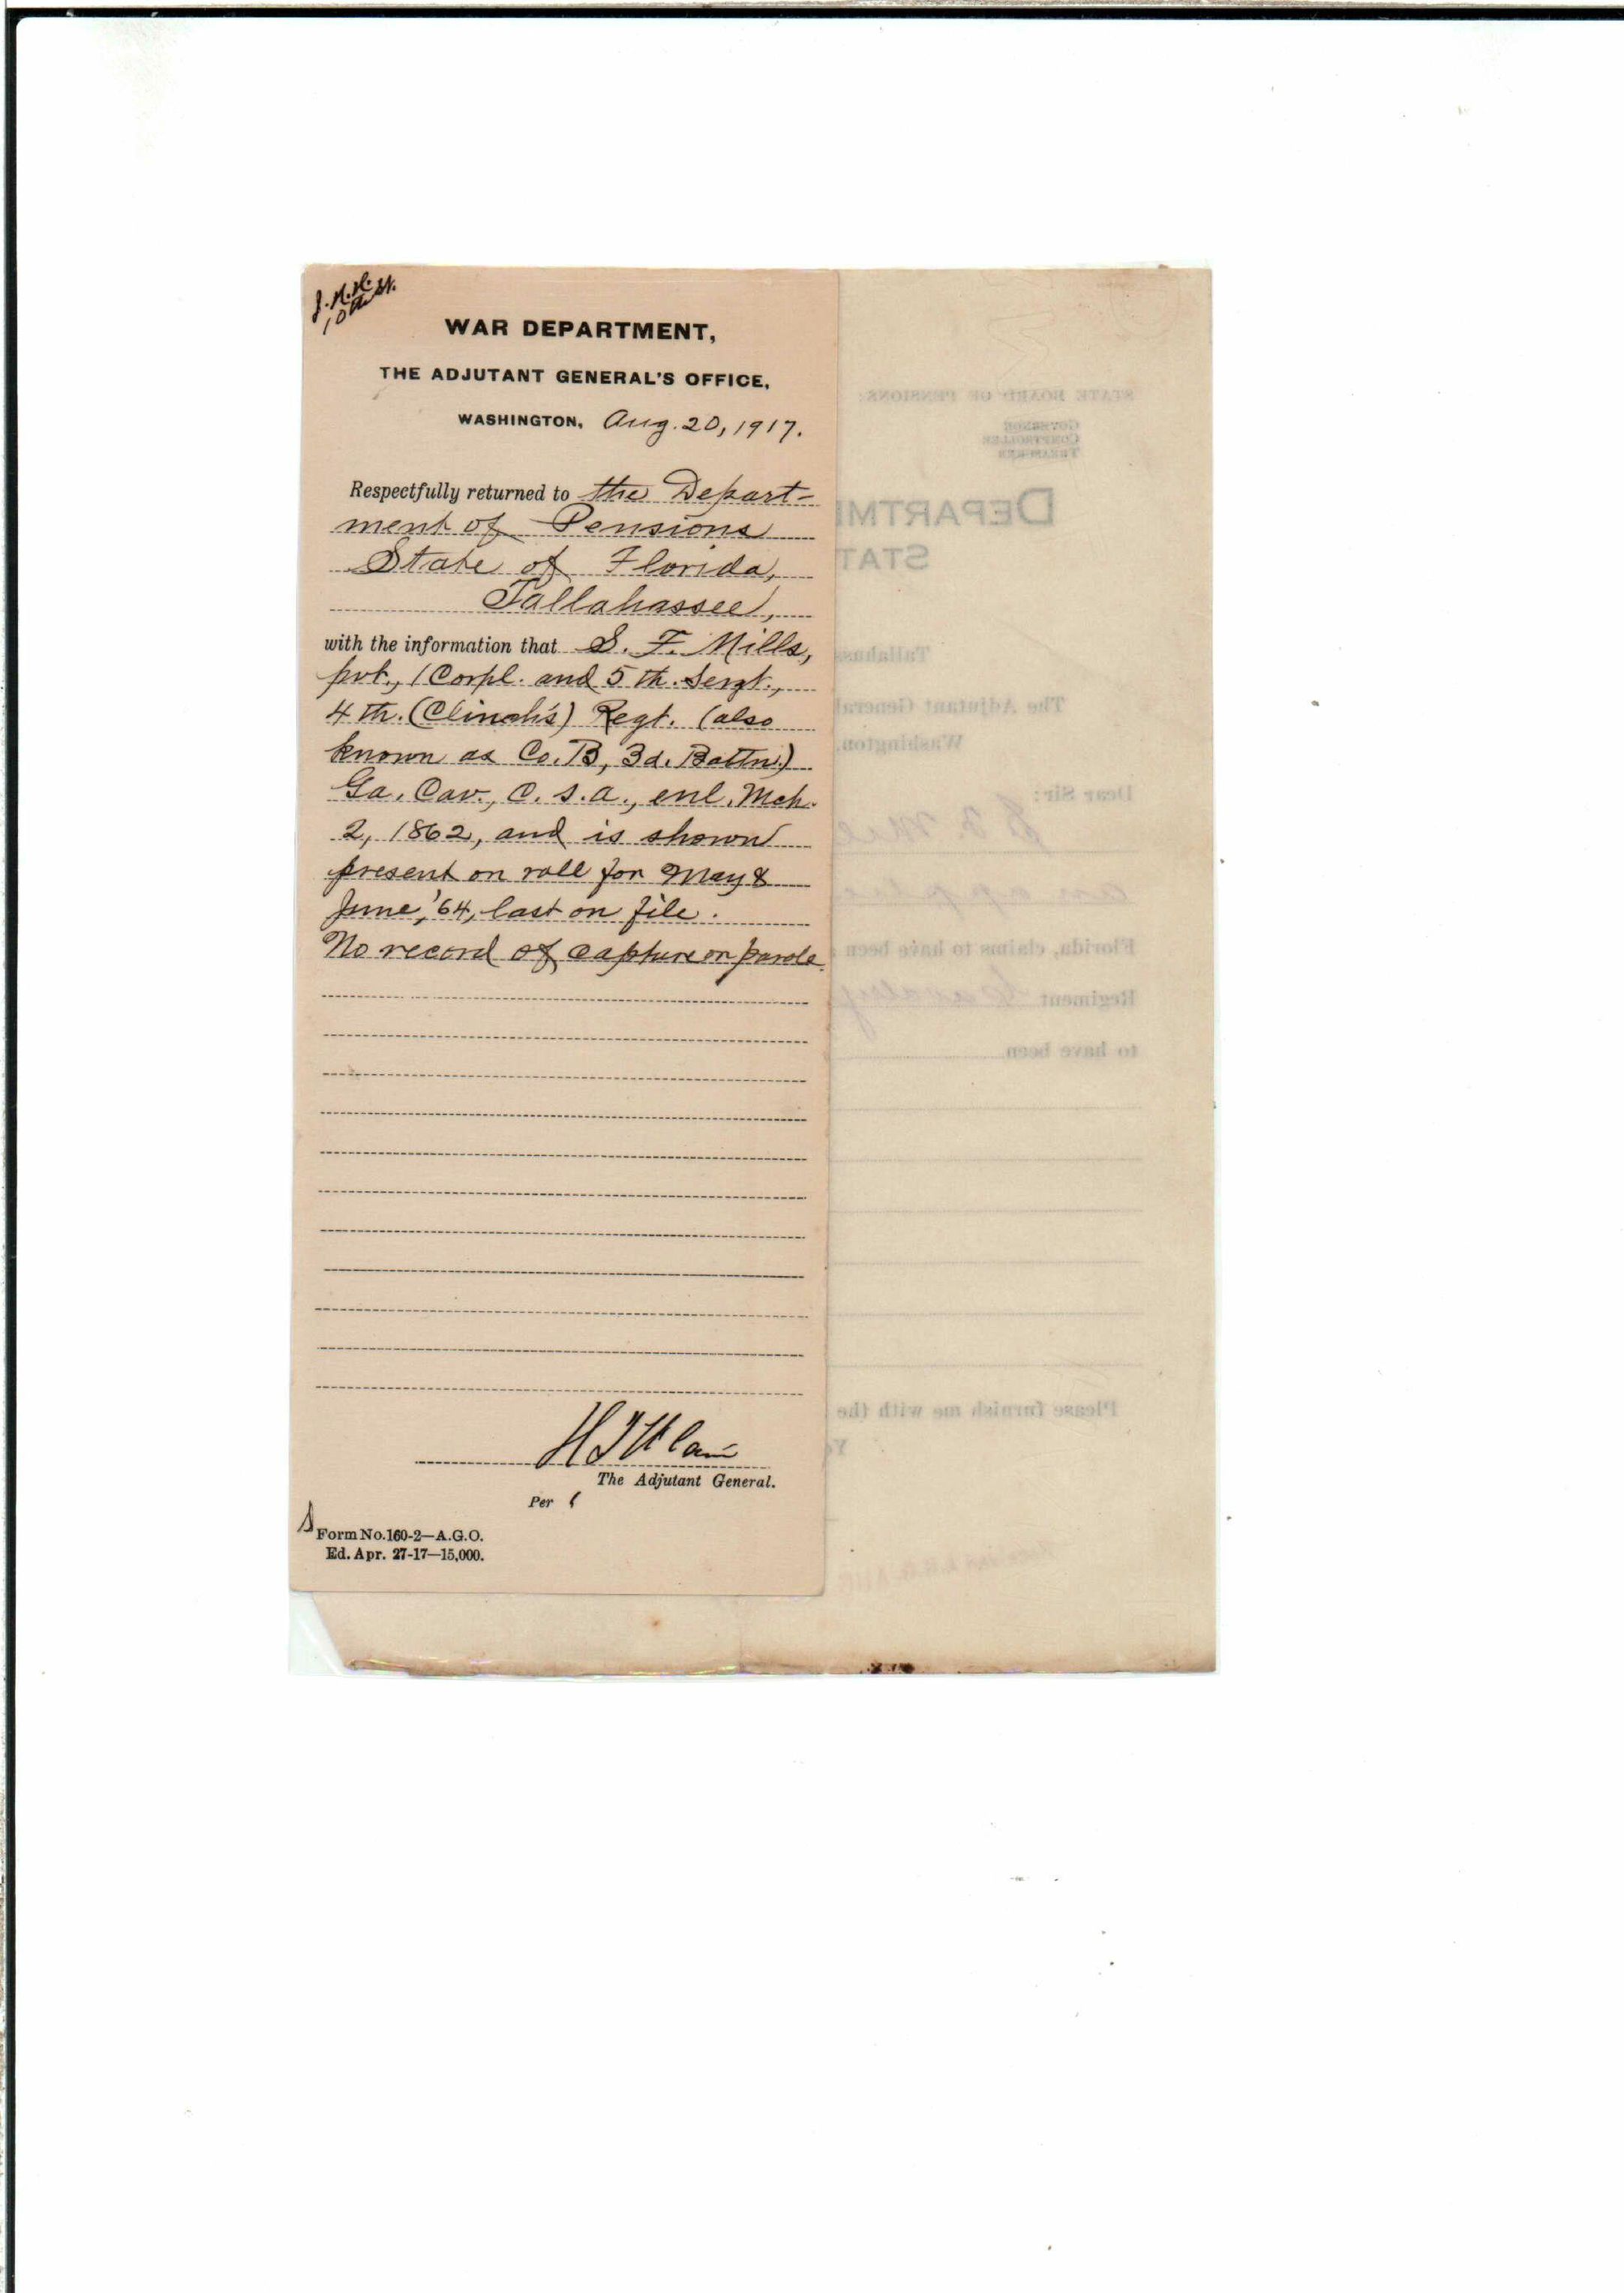 J.H.H.
10th St.
WAR DEPARTMENT,
THE ADJUTANT GENERAL'S OFFICE,
WASHINGTON, Aug. 20, 1917.
Respectfully returned to the Depart-
ment of Pensions
State of Florida,
Tallahassee,
with the information that S. F. Mills,
pvt., 1 Corpl. and 5 th. Sergt.,
4 th. (Clinch's) Regt. (also
known as Co. B, 3d. Battn.)
Ga. Cav., C. S. A., enl. Mch.
2, 1862, and is shown
present on roll for May &
June, '64, last on file.
No record of capture or parole.
The Adjutant General.
Per
Form No. 160-2—A.G.O.
Ed. Apr. 27-17—15,000.
STATE BOARD OF PENSIONS:
GOVERNOR
COMPTROLLER
TREASURER
DEPARTME
STAT
Tallahas
The Adjutant General
Washington,
Dear Sir:
S F Mil
an applic
Florida, claims to have been
Regiment Cavalry
to have been
Please furnish me with the
Yo